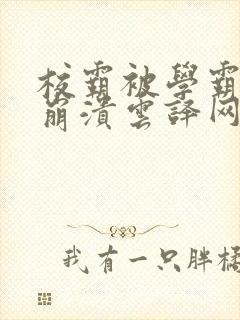 校霸被學霸
崩潰雲译网
我有一只胖橘